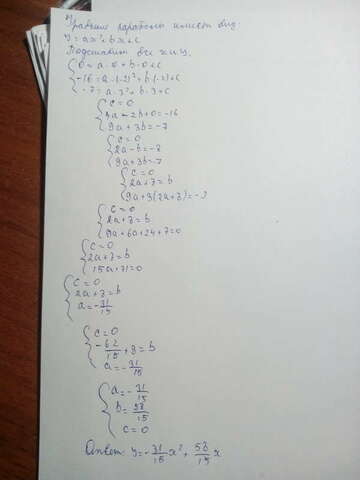 Уравнение параболы имеет вид:
y=ax²+bx+c
Подставим все x и y.
0=a·0+b·0+c
-16=a·(-2)²+b·(-2)+c
-7=a·3²+b·3+c
c=0
4a-2b+0=-16
9a+3b=-7
c=0
2a-b=-8
9a+3b=-7
c=0
2a+8=b
9a+3(2a+8)=-7
c=0
2a+8=b
9a+6a+24+7=0
c=0
2a+8=b
15a+31=0
c=0
2a+8=b
a=-31/15
c=0
-62/15+8=b
a=-31/15
a=-31/15
b=58/15
c=0
Ответ: y=-31/15x²+58/15x